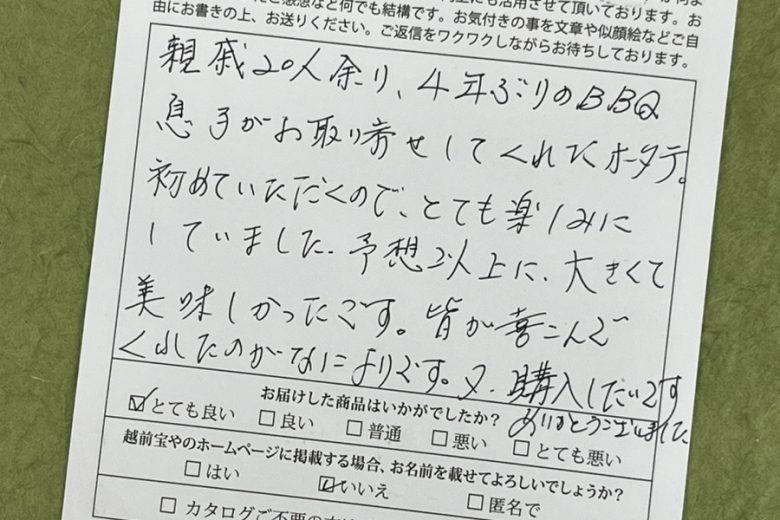 由にお書きの上、お送りください。ご返信をワクワクしながらお待ちしております。
親戚20人余り、4年ぶりのBBQ
息子がお取り寄せしてくれたホタテ。
初めていただくので、とても楽しみに
していました。予想以上に、大きくて
美味しかったです。皆が喜こんで
くれたのがなによりです。又、購入したいです
ありがとうございました
お届けした商品はいかがでしたか?
☑とても良い □良い □普通 □悪い □とても悪い
越前宝やのホームページに掲載する場合、お名前を載せてよろしいでしょうか?
□はい ☑いいえ □匿名で
□カタログご不要の方は